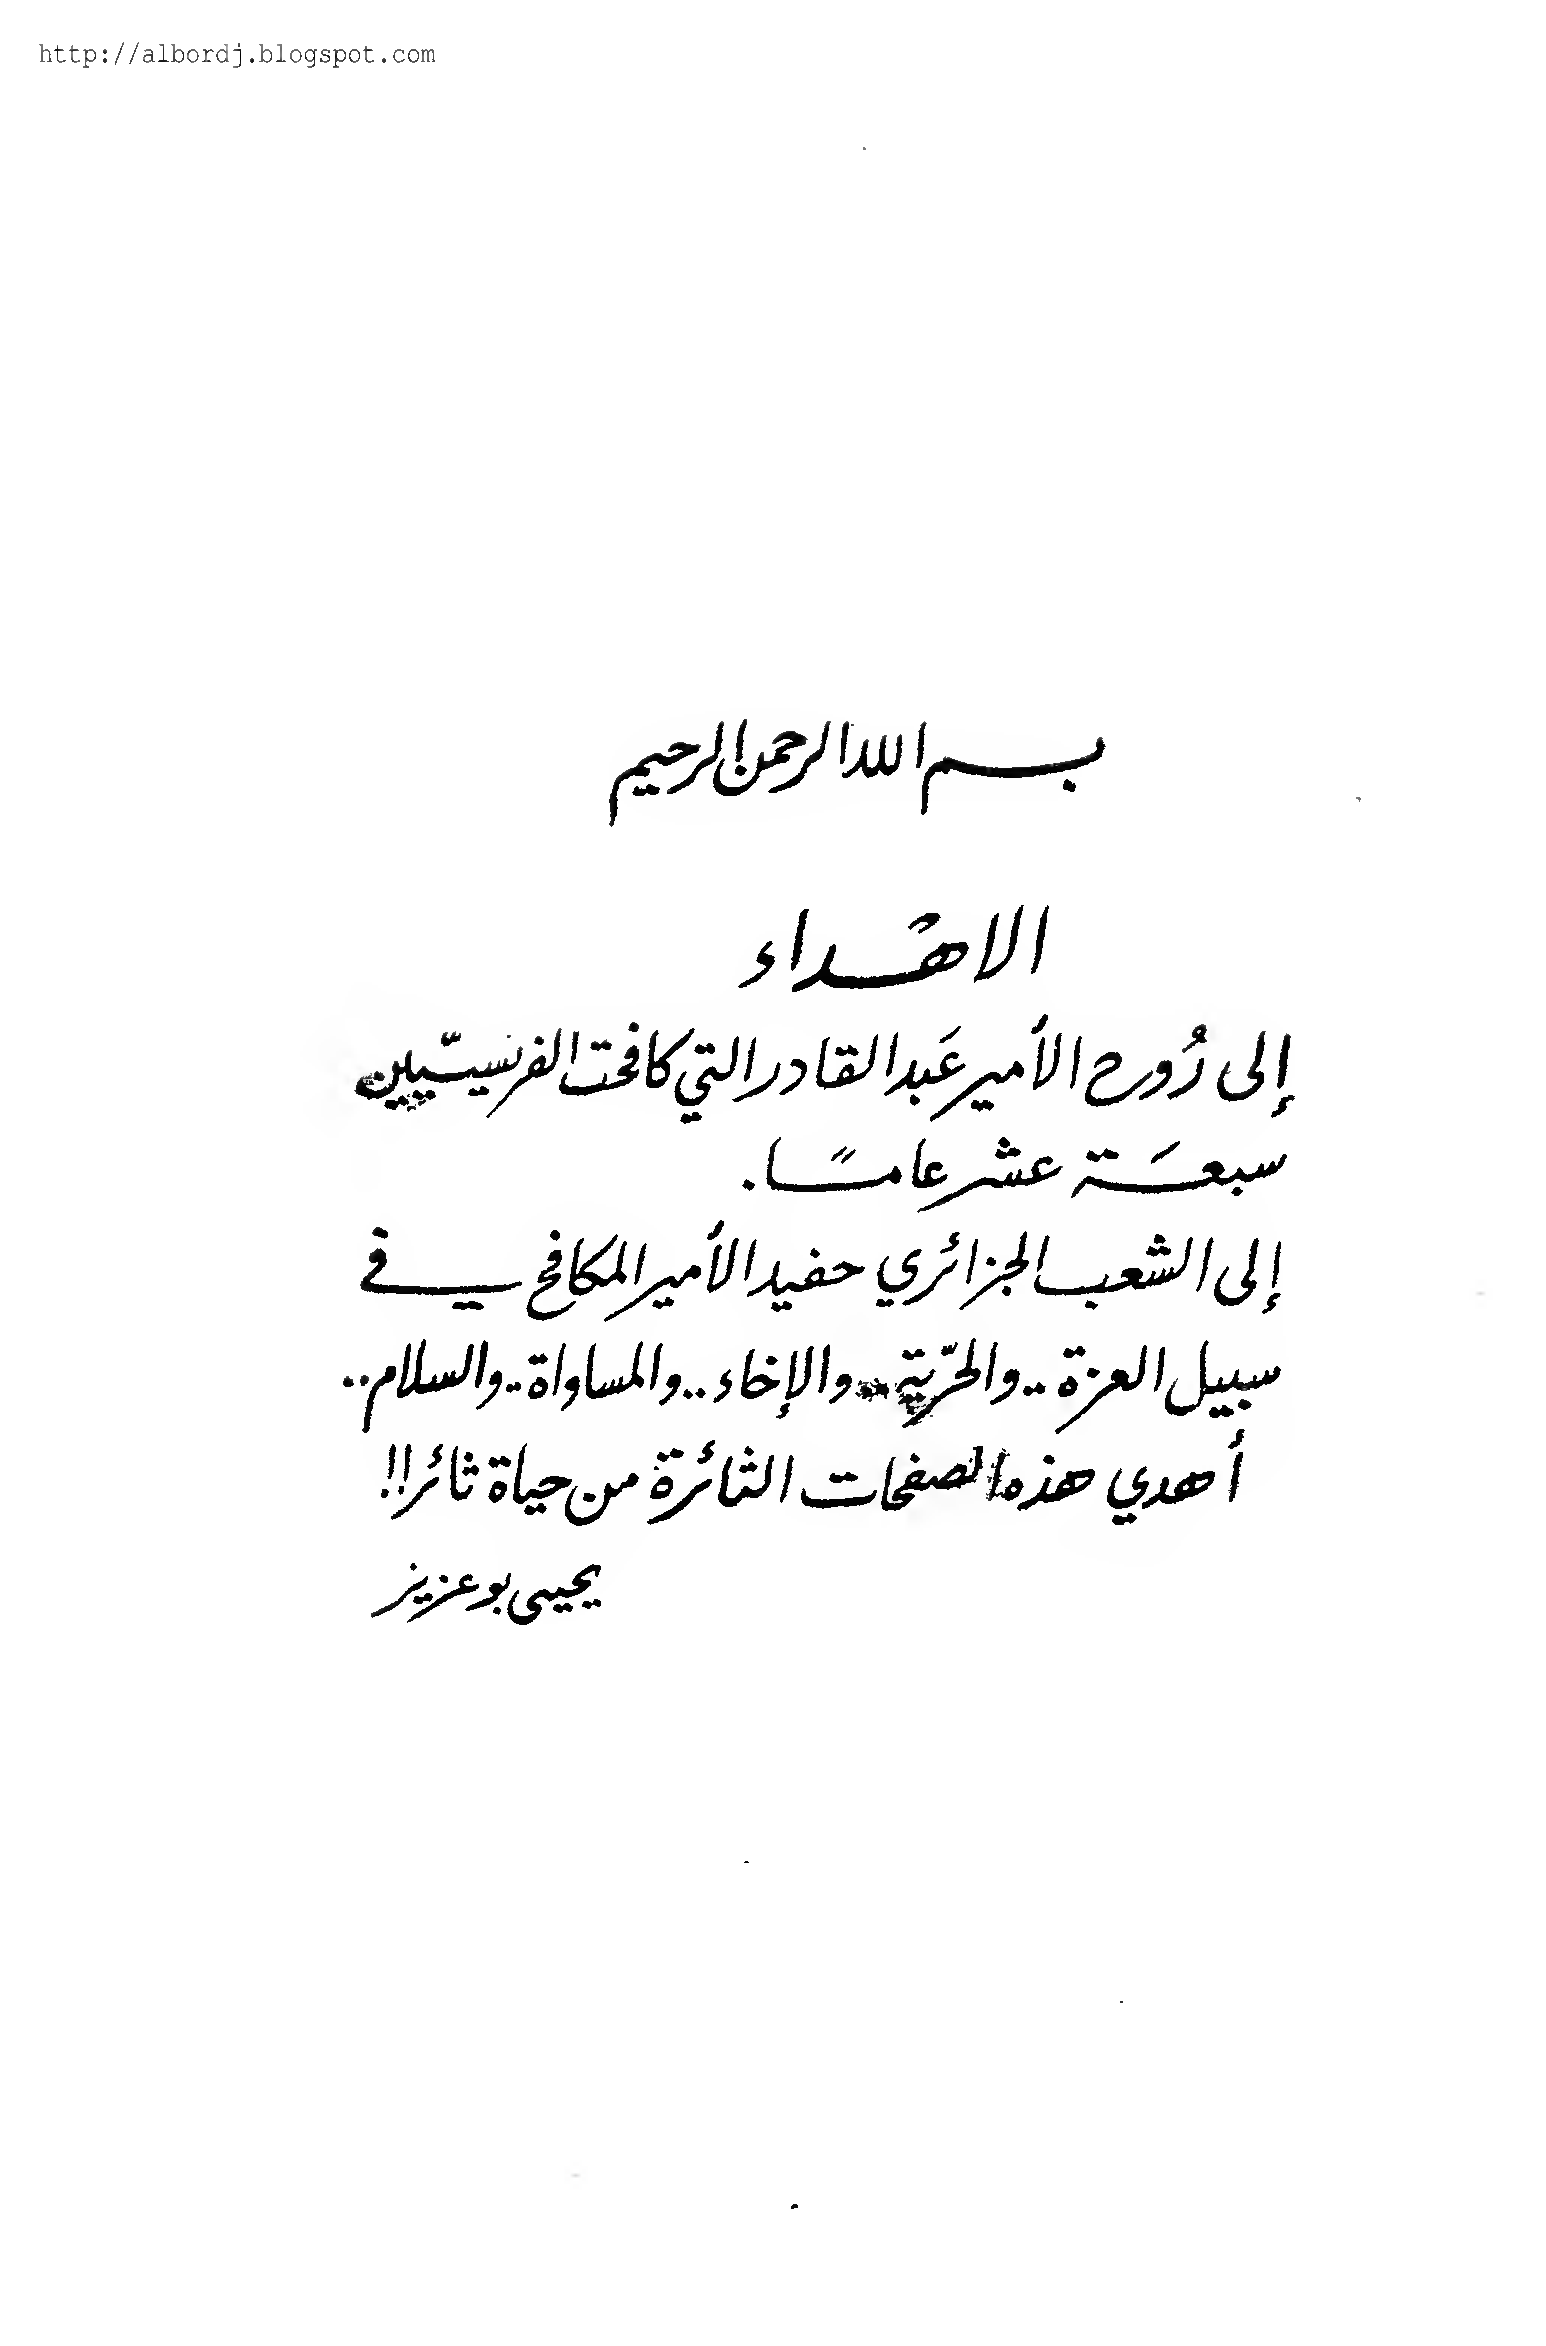 http://albordj.blogspot.com
بسم الله الرحمن الرحيم
الاهداء
إلى رُوح الأمير عَبد القادر التي كافحت الفرنسيّيين
سبعَة عشر عامًا.
إلى الشعب الجزائري حفيد الأمير المكافح في
سبيل العزة.. والحرّية.. والإخاء.. والمساواة.. والسلام..
أهدي هذه الصفحات الثائرة من حياة ثائر!!
يحيى بوعزيز